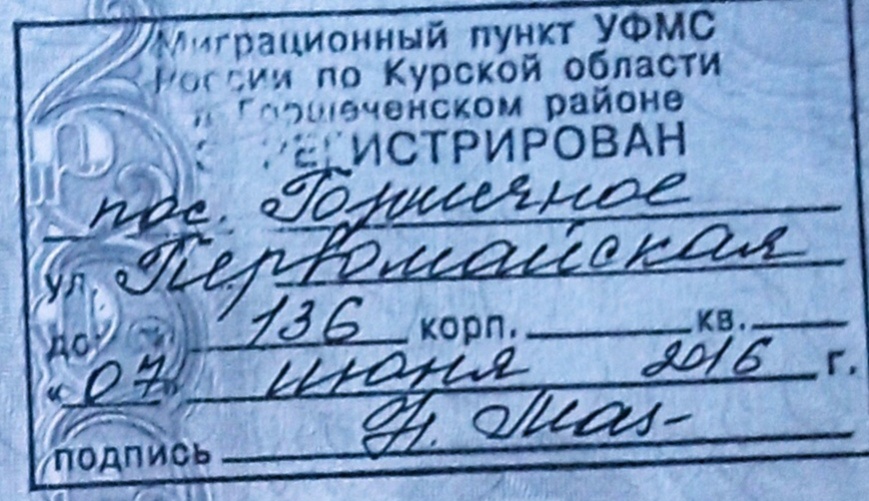 Миграционный пункт УФМС
России по Курской области
в Горшеченском районе
ЗАРЕГИСТРИРОВАН
пос. Горшечное
ул. Первомайская
дом 136 корп. кв.
«07» июня 2016 г.
подпись